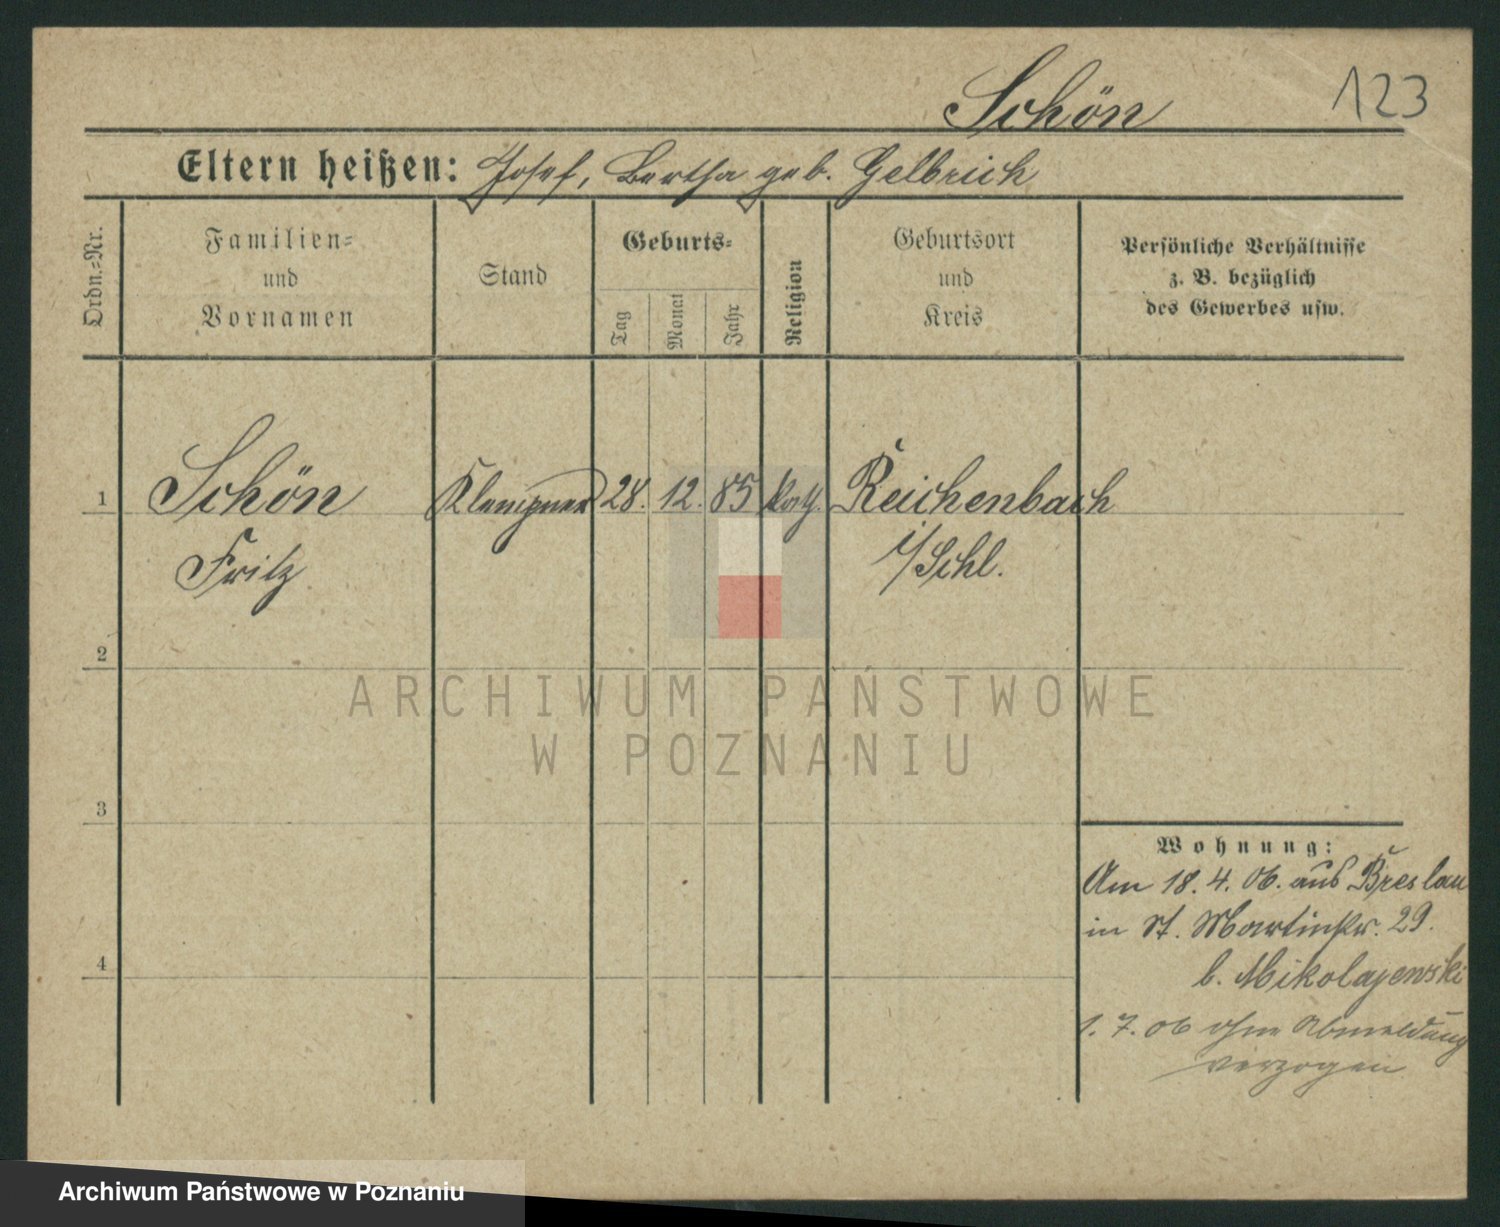 Schön
123
Eltern heißen: Josef, Bertha geb. Gelbrich
Ordn.=Nr.
Familien=
und
Vornamen
Stand
Geburts=
Tag
Monat
Jahr
Religion
Geburtsort
und
Kreis
Persönliche Verhältnisse
z. B. bezüglich
des Gewerbes usw.
1 Schön Klempner 28. 12. 85 kath. Reichenbach
Fritz i/Schl.
2
ARCHIWUM PAŃSTWOWE
W POZNANIU
3
Wohnung:
Am 18. 4. 06. aus Breslau
in St. Martinstr. 29.
b. Mikolajewski
4
1. 7. 06 ohne Abmeldung
verzogen
Archiwum Państwowe w Poznaniu